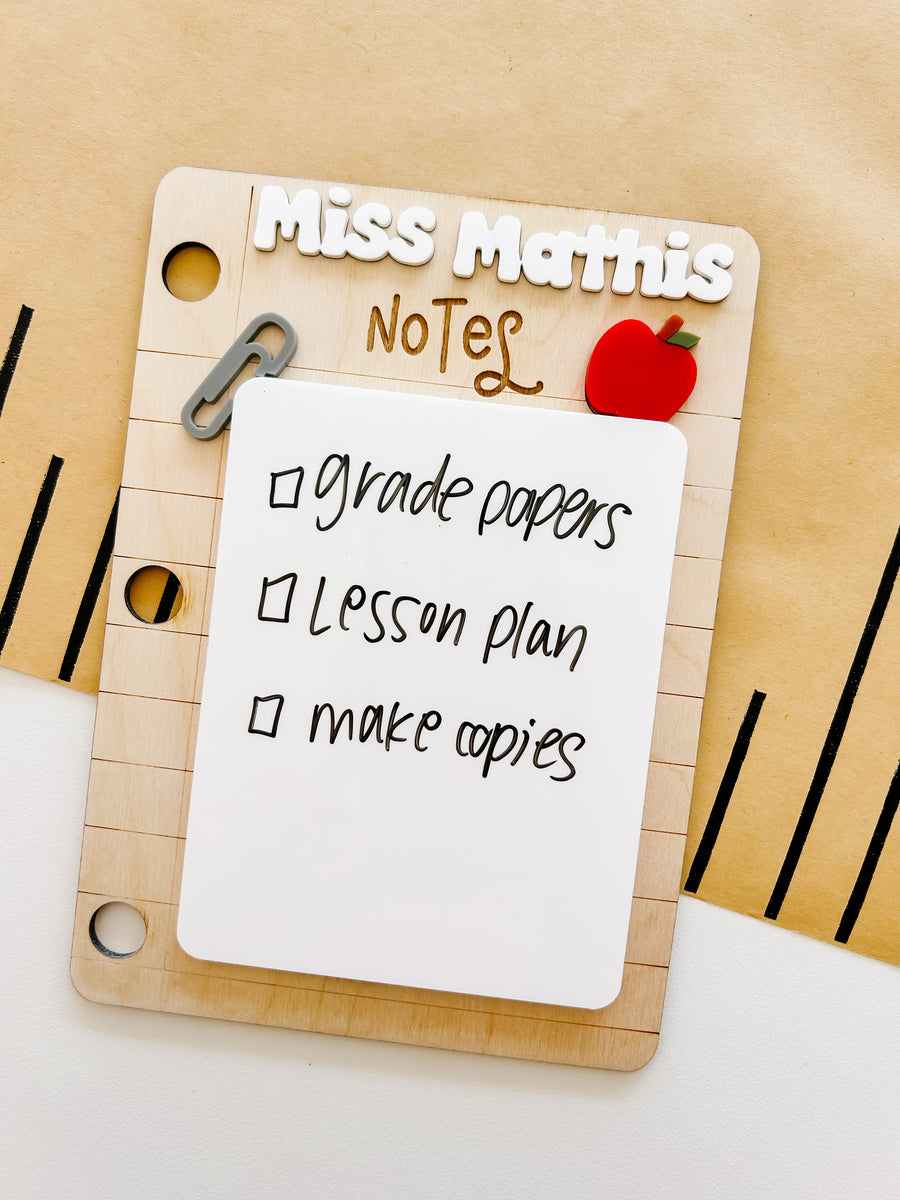 Miss Mathis
NOTES
grade papers
Lesson plan
make copies